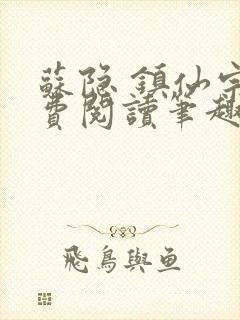 蘇隐 鎮仙宗
費閱讀筆趣
飛鳥與魚